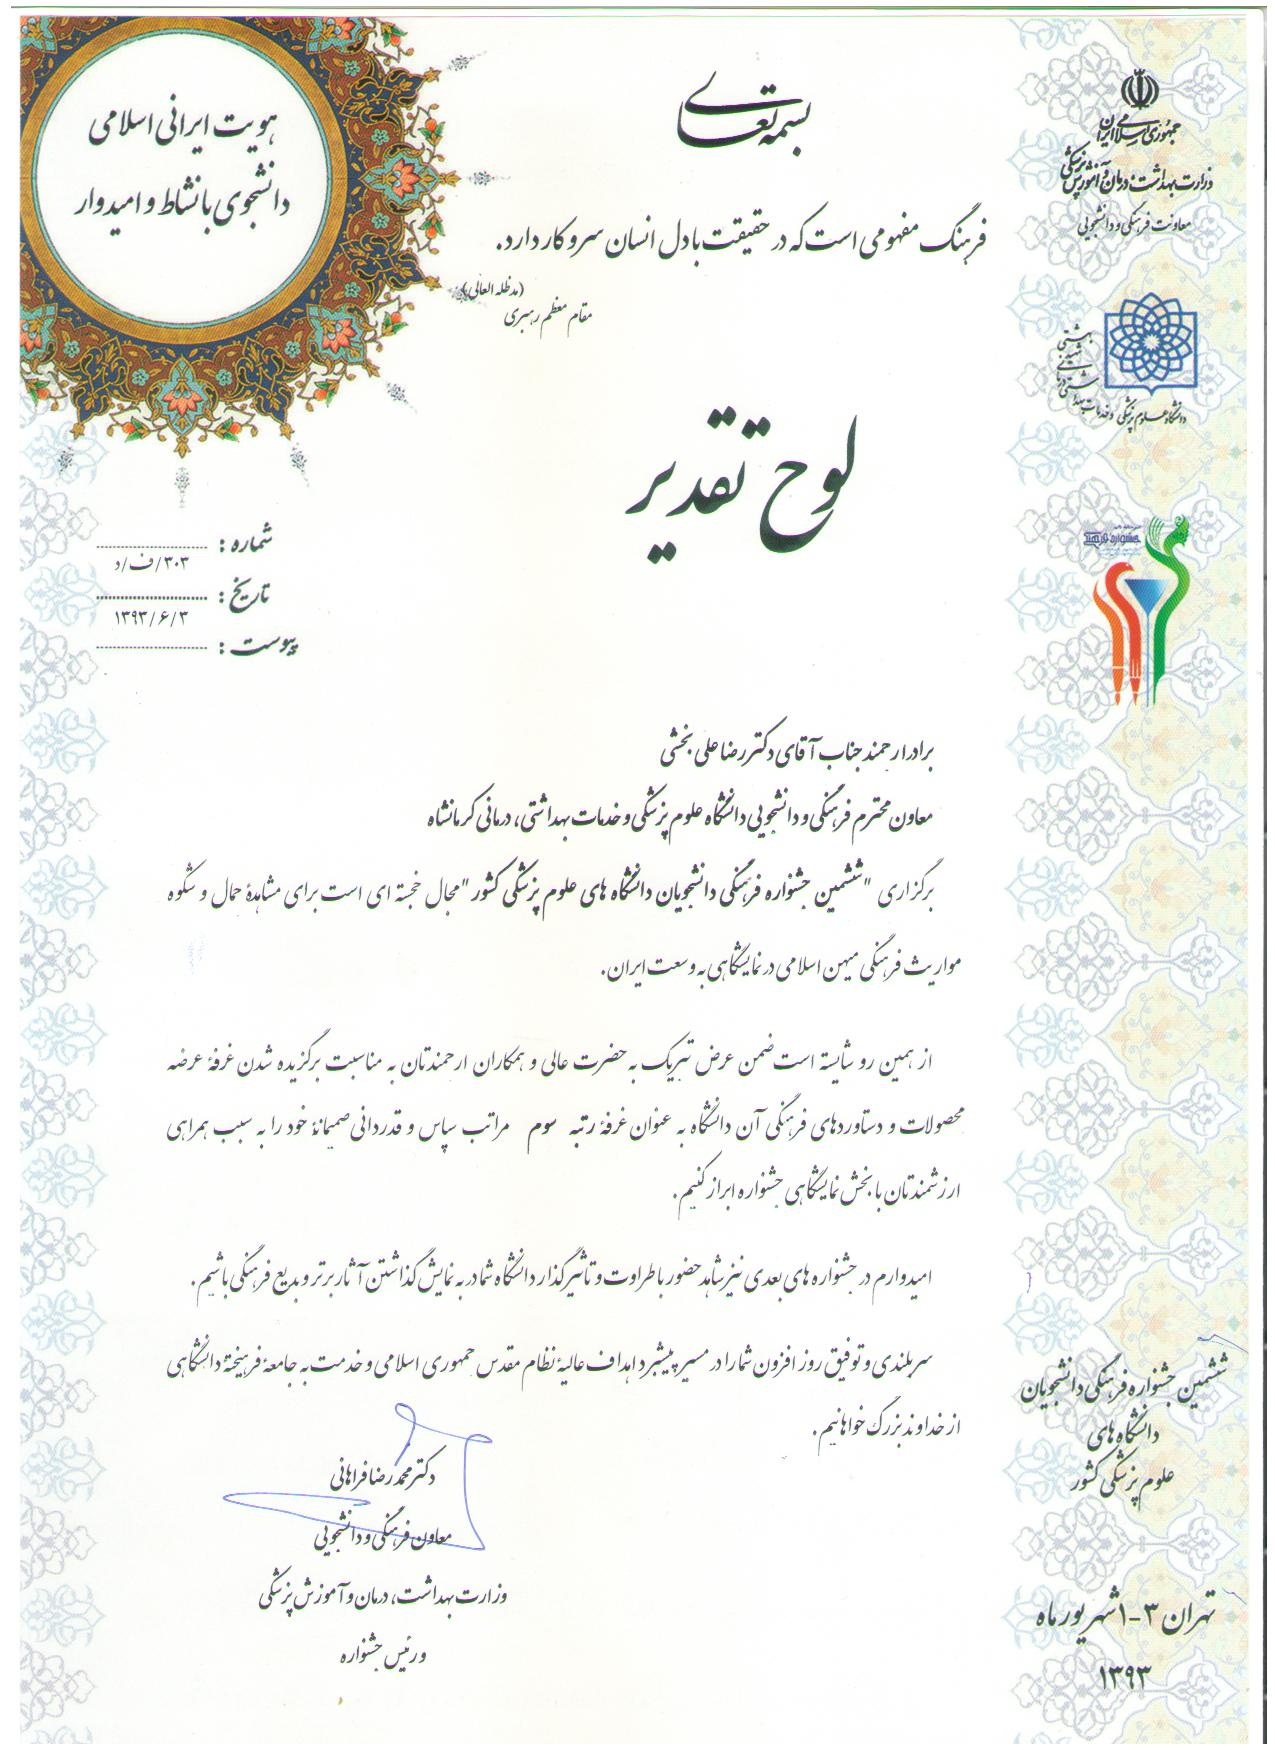 بسمه تعالی
جمهوری اسلامی ایران
وزارت بهداشت، درمان و آموزش پزشکی
معاونت فرهنگی و دانشجویی
هویت ایرانی اسلامی
دانشجوی با نشاط و امیدوار
فرهنگ مفهومی است که در حقیقت با دل انسان سر و کار دارد.
(مدظله العالی)
مقام معظم رهبری
دانشگاه علوم پزشکی و خدمات بهداشتی درمانی شهید بهشتی
لوح تقدیر
شماره :
۳۰۳/ف/د
تاریخ :
۱۳۹۳/۶/۳
پیوست :
برادر ارجمند جناب آقای دکتر رضا علی بخشی
معاون محترم فرهنگی و دانشجویی دانشگاه علوم پزشکی و خدمات بهداشتی، درمانی کرمانشاه
برگزاری "ششمین جشنواره فرهنگی دانشجویان دانشگاه های علوم پزشکی کشور" مجال خجسته ای است برای مشاهدۀ جمال و شکوه
مواریث فرهنگی میهن اسلامی در نمایشگاهی به وسعت ایران.
از همین رو شایسته است ضمن عرض تبریک به حضرت عالی و همکاران ارجمندتان به مناسبت برگزیده شدن غرفۀ عرضه
محصولات و دستاوردهای فرهنگی آن دانشگاه به عنوان غرفۀ رتبه سوم مراتب سپاس و قدردانی صمیمانۀ خود را به سبب همراهی
ارزشمندتان با بخش نمایشگاهی جشنواره ابراز کنیم.
امیدوارم در جشنواره های بعدی نیز شاهد حضور با طراوت و تاثیرگذار دانشگاه شما در به نمایش گذاشتن آثار برتر و بدیع فرهنگی باشیم.
سربلندی و توفیق روز افزون شما را در مسیر پیشبرد اهداف عالیۀ نظام مقدس جمهوری اسلامی و خدمت به جامعۀ فرهیختۀ دانشگاهی
از خداوند بزرگ خواهانیم.
دکتر محمدرضا فراهانی
معاون فرهنگی و دانشجویی
وزارت بهداشت، درمان و آموزش پزشکی
و رئیس جشنواره
ششمین جشنواره فرهنگی دانشجویان
دانشگاه های
علوم پزشکی کشور
تهران ۳-۱ شهریور ماه
۱۳۹۳